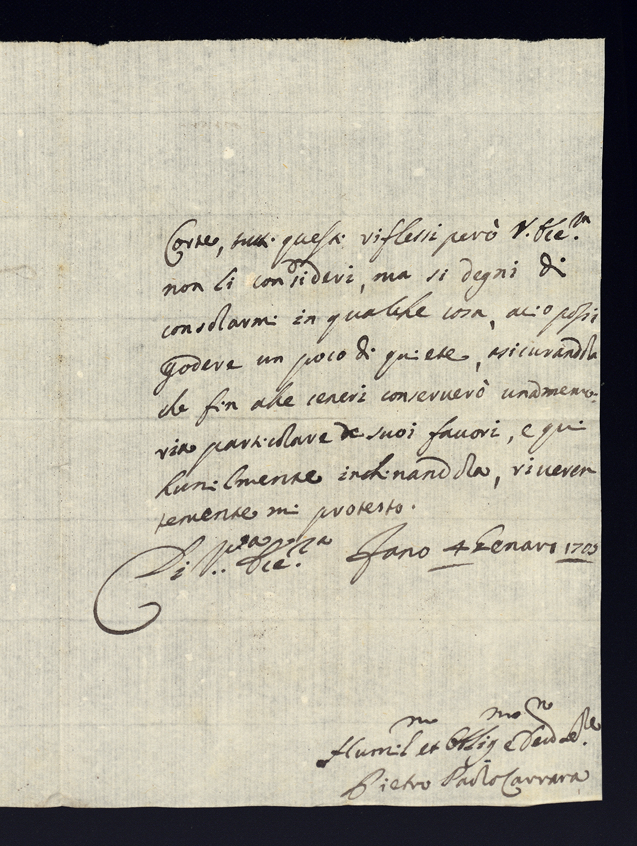 Corte, tutti questi riflessi però V. Ecc.za
non li consideri, ma si degni di
consolarmi in qualche cosa, acciò possi
godere un poco di quiete, asicurandola
che fin alle ceneri conserverò una memo-
ria particolare de suoi favori, e qui
humilmente inchinandola, riveren
temente mi protesto.
Di V.ra Ecc.za Fano 4 Genaro 1700
Humil.mo et Oblig.mo
Pietro Paolo Carrara